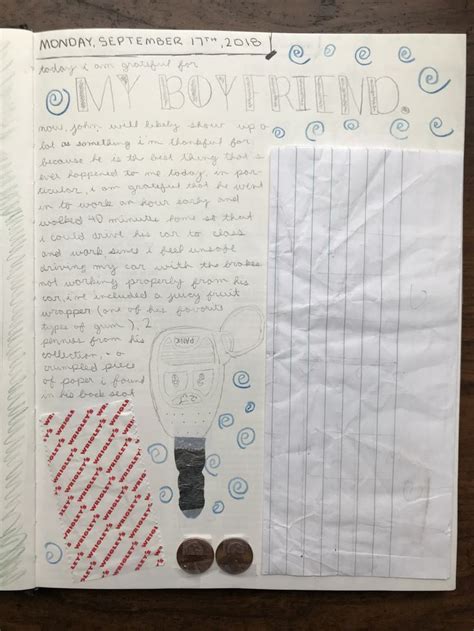 MONDAY, SEPTEMBER 17TH, 2018
today i am grateful for
MY BOYFRIEND.
now, john will likely show up a
lot as something i'm thankful for
because he is the best thing that's
ever happened to me. today, in par-
ticular, i am grateful that he went
in to work an hour early and
walked 40 minutes home so that
i could drive his car to class
and work since i feel unsafe
driving my car with the brakes
not working properly. from his
car, i've included a juicy fruit
wrapper (one of his favorite
types of gum), 2
pennies from his
collection, + a
crumpled piece
of paper i found
in his back seat
PANIC
WRIGLEY'S WRIGLEY'S WRIGLEY'S